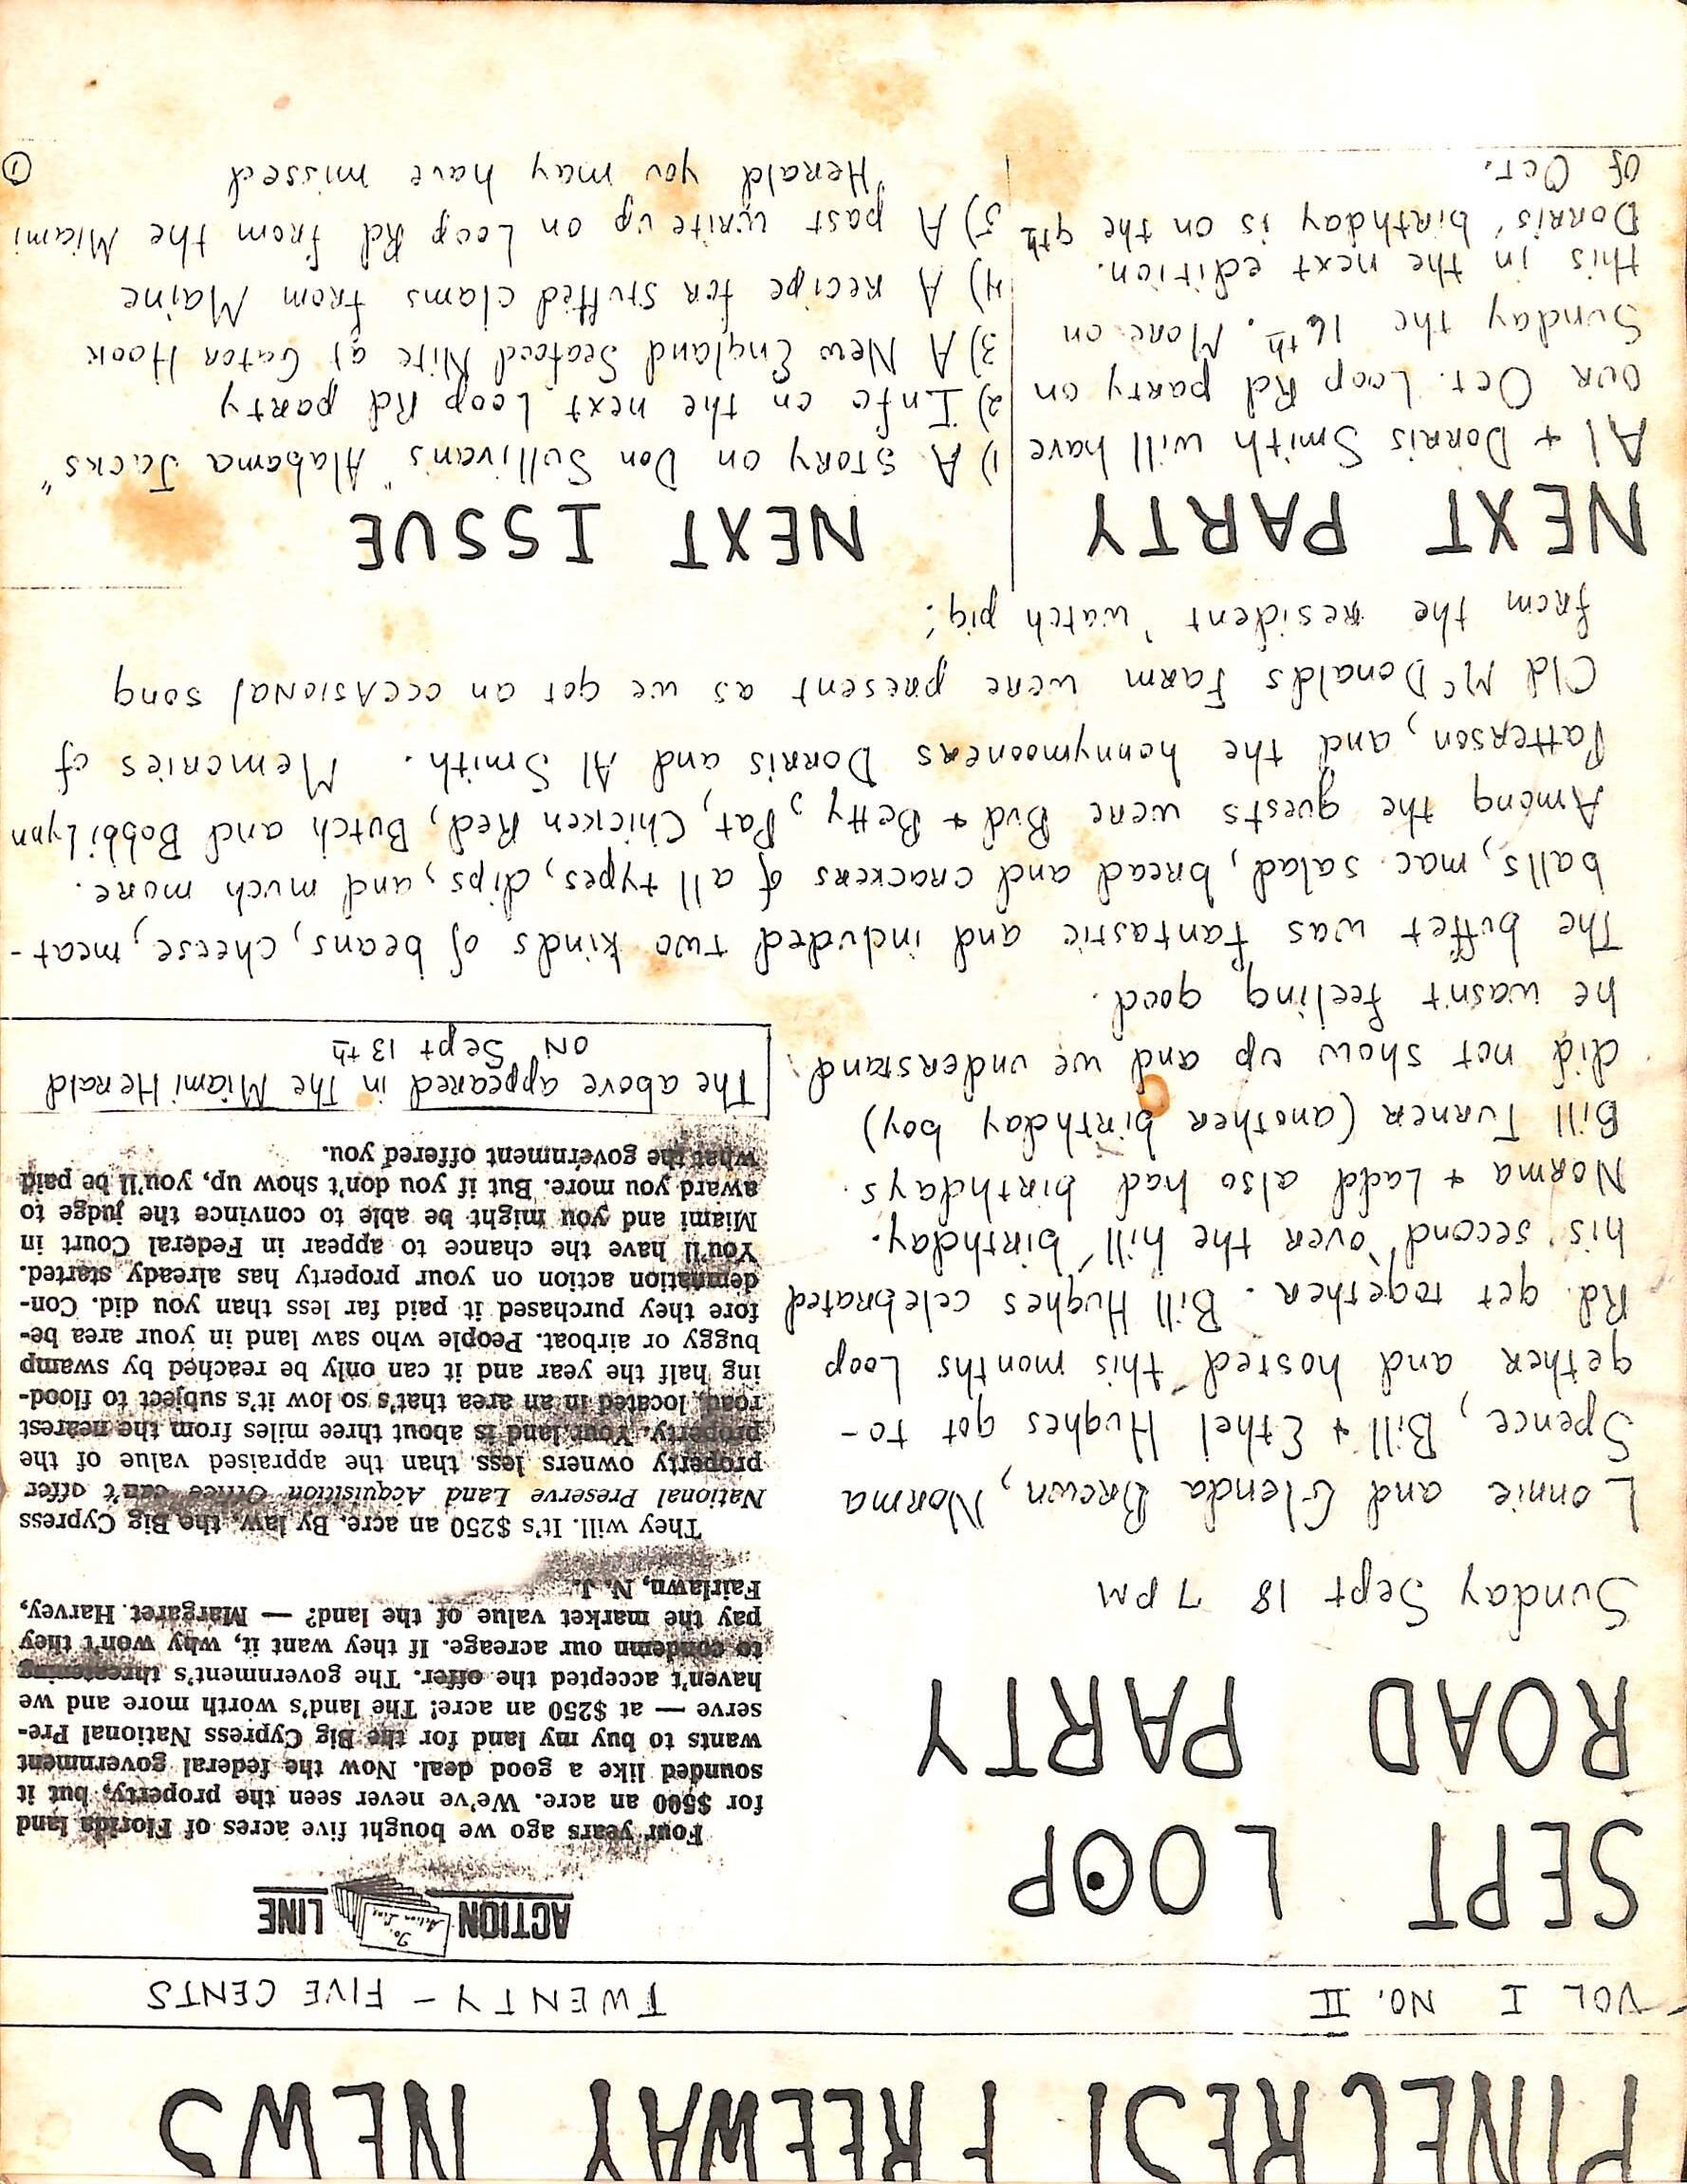 PINECREST FREEWAY NEWS
VOL I NO. II TWENTY - FIVE CENTS
SEPT LOOP
ROAD PARTY
Sunday Sept 18 7 PM
Lonnie and Glenda Brown, Norma
Spence, Bill + Ethel Hughes got to-
gether and hosted this months Loop
Rd. get together. Bill Hughes celebrated
his second "over the hill" birthday.
Norma + Ladd also had birthdays.
Bill Turner (another birthday boy)
did not show up and we understand
he wasn't feeling good.
ACTION LINE
To:
Action Line
Four years ago we bought five acres of Florida land
for $500 an acre. We've never seen the property, but it
sounded like a good deal. Now the federal government
wants to buy my land for the Big Cypress National Pre-
serve — at $250 an acre! The land's worth more and we
haven't accepted the offer. The government's threatening
to condemn our acreage. If they want it, why won't they
pay the market value of the land? — Margaret Harvey,
Fairlawn, N. J.
They will. It's $250 an acre. By law, the Big Cypress
National Preserve Land Acquisition Office can't offer
property owners less than the appraised value of the
property. Your land is about three miles from the nearest
road, located in an area that's so low it's subject to flood-
ing half the year and it can only be reached by swamp
buggy or airboat. People who saw land in your area be-
fore they purchased it paid far less than you did. Con-
demnation action on your property has already started.
You'll have the chance to appear in Federal Court in
Miami and you might be able to convince the judge to
award you more. But if you don't show up, you'll be paid
what the government offered you.
The above appeared in The Miami Herald
ON Sept 13th
The buffet was fantastic and included two kinds of beans, cheese, meat-
balls, mac. salad, bread and crackers of all types, dips, and much more.
Among the guests were Bud + Betty, Pat, Chicken Red, Butch and Bobbi Lynn
Patterson, and the honnymooners Dorris and Al Smith. Memories of
Old McDonalds Farm were present as we got an occasional song
from the resident 'watch pig'.
NEXT PARTY
Al + Dorris Smith will have
our Oct. Loop Rd party on
Sunday the 16th. More on
this in the next edition.
Dorris' birthday is on the 9th
of Oct.
NEXT ISSUE
1) A story on Don Sullivan's "Alabama Jacks"
2) Info on the next Loop Rd party
3) A New England Seafood Nite at Gator Hook
4) A recipe for stuffed clams from Maine
5) A past write up on Loop Rd from the Miami
Herald you may have missed
1